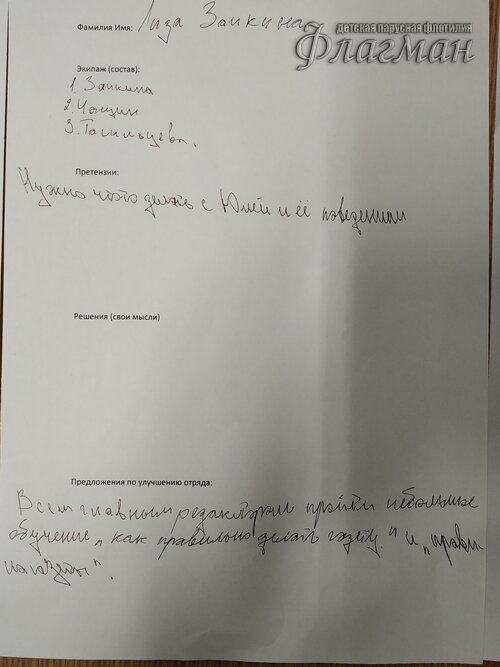 детская парусная флотилия
Флагман
Фамилия Имя: Лиза Заикина
Экипаж (состав):
1. Заикина
2. Чащин
3. Тагильцева.
Претензии:
Нужно что-то делать с Юлей и её поведением
Решения (свои мысли)
Предложения по улучшению отряда:
Всем главным редакторам пройти небольшое
обучение „как правильно делать газету" и „правила
газеты".